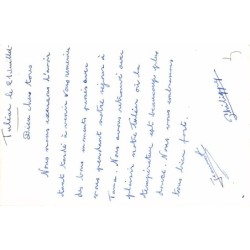 Tahier le 21 Juillet
Bien chers tous
Nous nous excusons d'avoir
tant tardé à venir vous remercier
des bons moments passés avec
vous pendant notre séjour à
Nous avons retrouvé avec
plaisir notre Tahier où la
température est beaucoup plus
douce. Nous vous embrassons
tous bien fort.